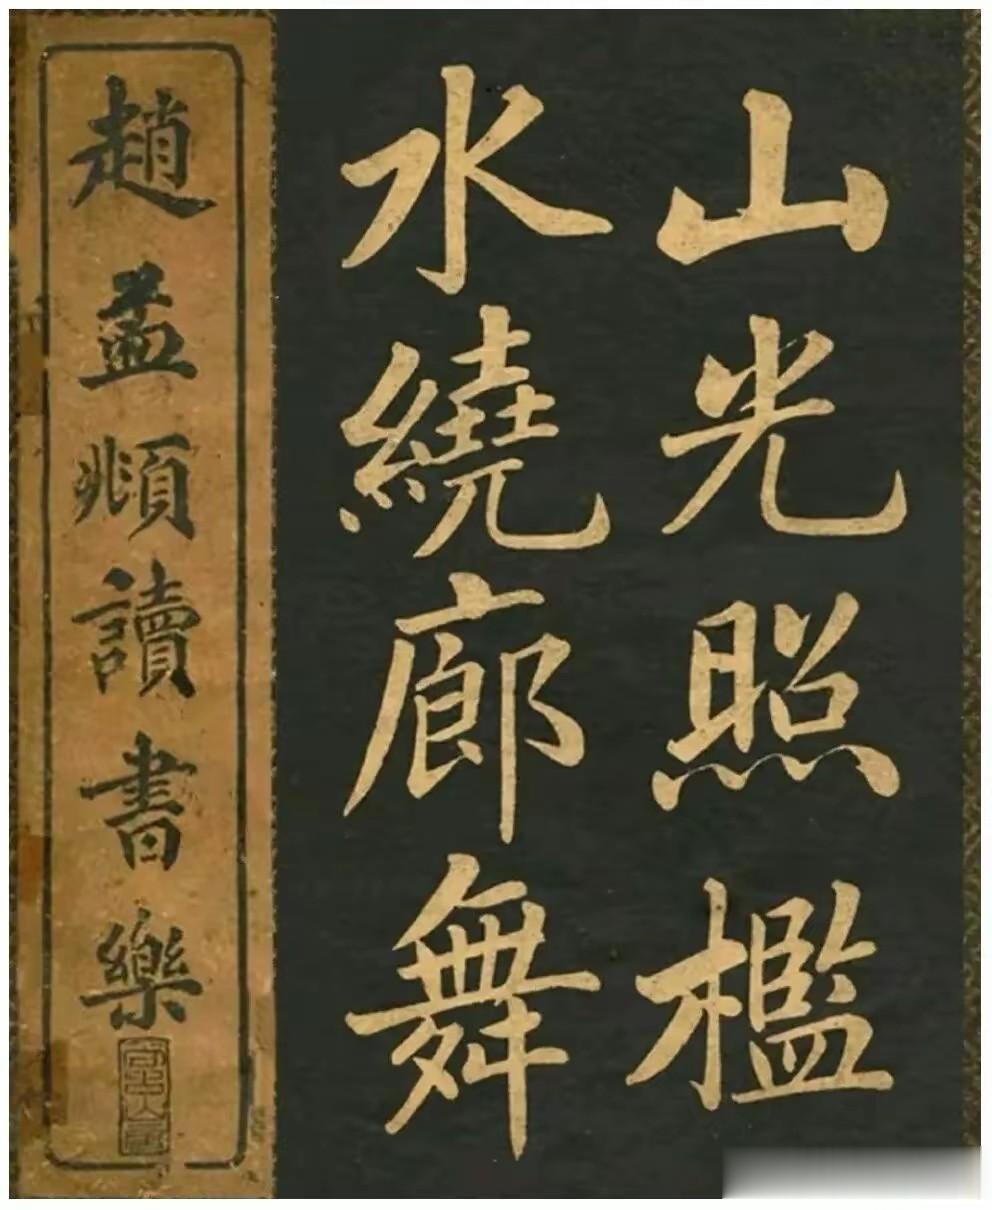 山光照檻
水繞廊舞
趙孟頫讀書樂